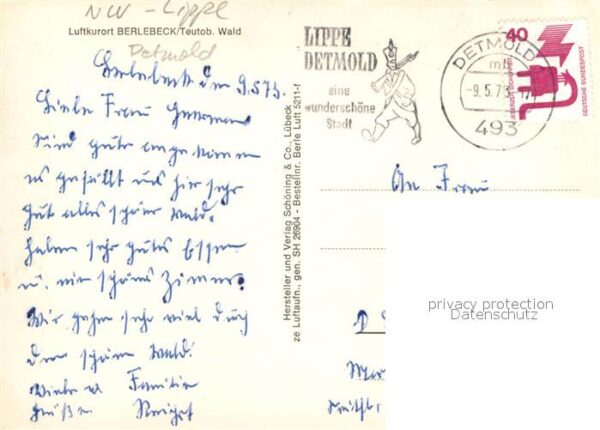 NW - Lippe
Luftkurort BERLEBECK/Teutob. Wald
Detmold
Berlebeck den 9.5.73.
Liebe Frau
Sind gut angekommen
es gefällt uns hier sehr
gut alles schöner Wald.
haben sehr gutes Essen
u. ein schönes Zimmer.
Wir gehen sehr viel durch
den schönen Wald.
Viele Familie
Grüßen
Hersteller und Verlag Schöning & Co., Lübeck
ze Luftaufn., gen. SH 26904 - Bestellnr. Berle Luft 5211-f
LIPPE
DETMOLD
eine
wunderschöne
Stadt
DETMOLD
mb
-9.5.73
493
40
DEUTSCHE BUNDESPOST
An Frau
privacy protection
Datenschutz